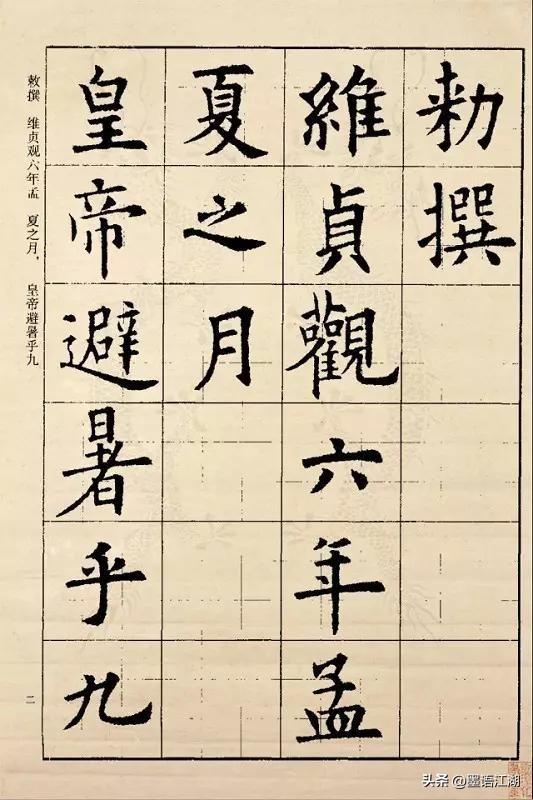 勑撰
維貞觀六年孟
夏之月
皇帝避暑乎九
敕撰 维贞观六年孟 夏之月， 皇帝避暑乎九
二
头条 @墨语江湖